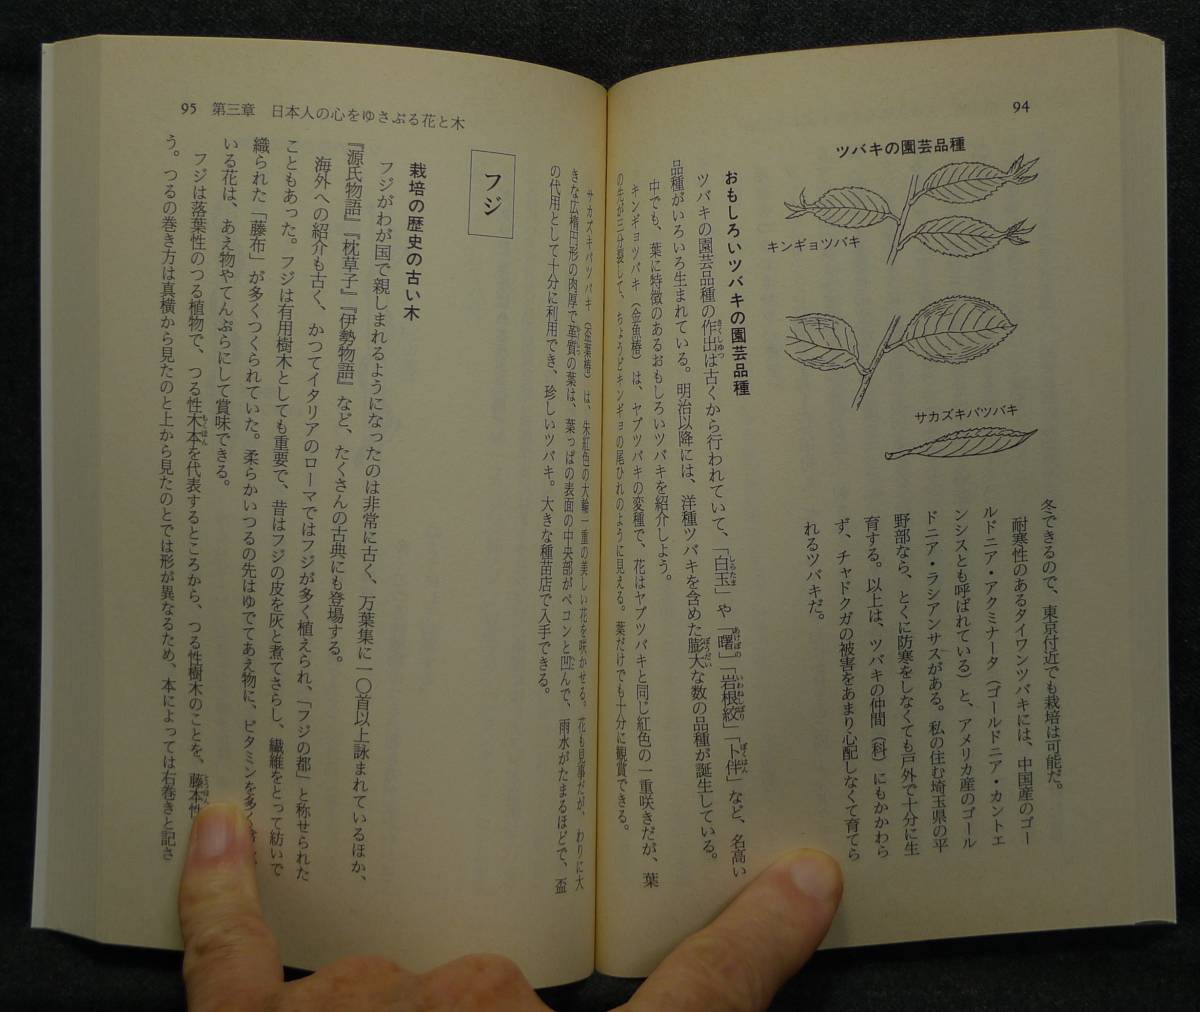 94
ツバキの園芸品種
キンギョツバキ
サカズキバツバキ
冬できるので、東京付近でも栽培は可能だ。
耐寒性のあるタイワンツバキには、中国産のゴー
ルドニア・アクミナータ（ゴールドニア・カントエ
ンシスとも呼ばれている）と、アメリカ産のゴール
ドニア・ラシアンサスがある。私の住む埼玉県の平
野部なら、とくに防寒をしなくても戸外で十分に生
育する。以上は、ツバキの仲間（科）にもかかわら
ず、チャドクガの被害をあまり心配しなくて育てら
れるツバキだ。
おもしろいツバキの園芸品種
ツバキの園芸品種の作出は古くから行われていて、「白玉」や「曙」「岩根絞」「卜伴」など、名高い
品種がいろいろ生まれている。明治以降には、洋種ツバキを含めた膨大な数の品種が誕生している。
中でも、葉に特徴のあるおもしろいツバキを紹介しよう。
キンギョツバキ（金魚椿）は、ヤブツバキの変種で、花はヤブツバキと同じ紅色の一重咲きだが、葉
の先が三分裂して、ちょうどキンギョの尾ひれのように見える。葉だけでも十分に観賞できる。
95 第三章 日本人の心をゆさぶる花と木
サカズキバツバキ（盃葉椿）は、朱紅色の大輪一重の美しい花を咲かせる。花も見事だが、わりに大
きな広楕円形の肉厚で革質の葉は、葉っぱの表面の中央部がペコンと凹んで、雨水がたまるほどで、盃
の代用として十分に利用でき、珍しいツバキ。大きな種苗店で入手できる。
フジ
栽培の歴史の古い木
フジがわが国で親しまれるようになったのは非常に古く、万葉集に一〇首以上詠まれているほか、
『源氏物語』『枕草子』『伊勢物語』など、たくさんの古典にも登場する。
海外への紹介も古く、かつてイタリアのローマではフジが多く植えられ、「フジの都」と称せられた
こともあった。フジは有用樹木としても重要で、昔はフジの皮を灰と煮てさらし、繊維をとって紡いで
織られた「藤布」が多くつくられていた。柔らかいつるの先はゆでてあえ物に、ビタミンを多く
いる花は、あえ物やてんぷらにして賞味できる。
フジは落葉性のつる植物で、つる性木本を代表するところから、つる性樹木のことを、藤本性
う。つるの巻き方は真横から見たのと上から見たのとでは形が異なるため、本によっては右巻きと記さ